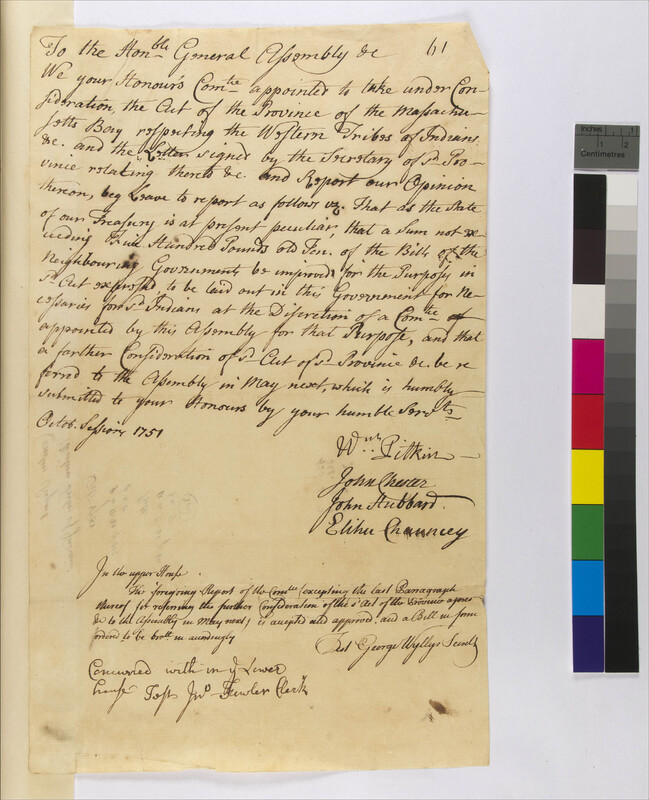 61
To the Hon.ble General Assembly &c
We your Honour's Com.tte appointed to take under Con-
sideration, the Act of the Province of the Massachu-
setts Bay respecting the Western Tribes of Indians
&c. and the Letter signed by the Secretary of sd. Pro-
vince relating thereto &c. and Report our Opinion
thereon, beg Leave to report as follows vz. That as the State
of our Treasury is at present peculiar, that a Sum not ex-
ceeding Five Hundred Pounds old Ten. of the Bills of the
Neighbouring Governments be improved for the Purposes in
sd. Act expressed to be laid out in this Government for Ne-
cessaries for sd. Indians at the Discretion of a Com.tte
appointed by this Assembly for that Purpose, and that
a farther Consideration of sd. Act of sd. Province &c. be re
ferred to the Assembly in May next, which is humbly
submitted to your Honours by your humble Serv.ts
Octob. Session 1751
Wm. Pitkin
John Chester
John Hubbard
Elihu Chauncey
In the upper House.
The foregoing Report of the Com.tte (excepting the last Parragraph
thereof for referring the further Consideration of the sd Act of the Province
&c to the Assembly in May next) is accepted and approved. and a Bill in form
ordered to be brott in accordingly
Test George Wyllys Secret.
Concurred with in ye Lower
house Test Jno. Fowler Clerk
Inches 1
1 2
Centimetres